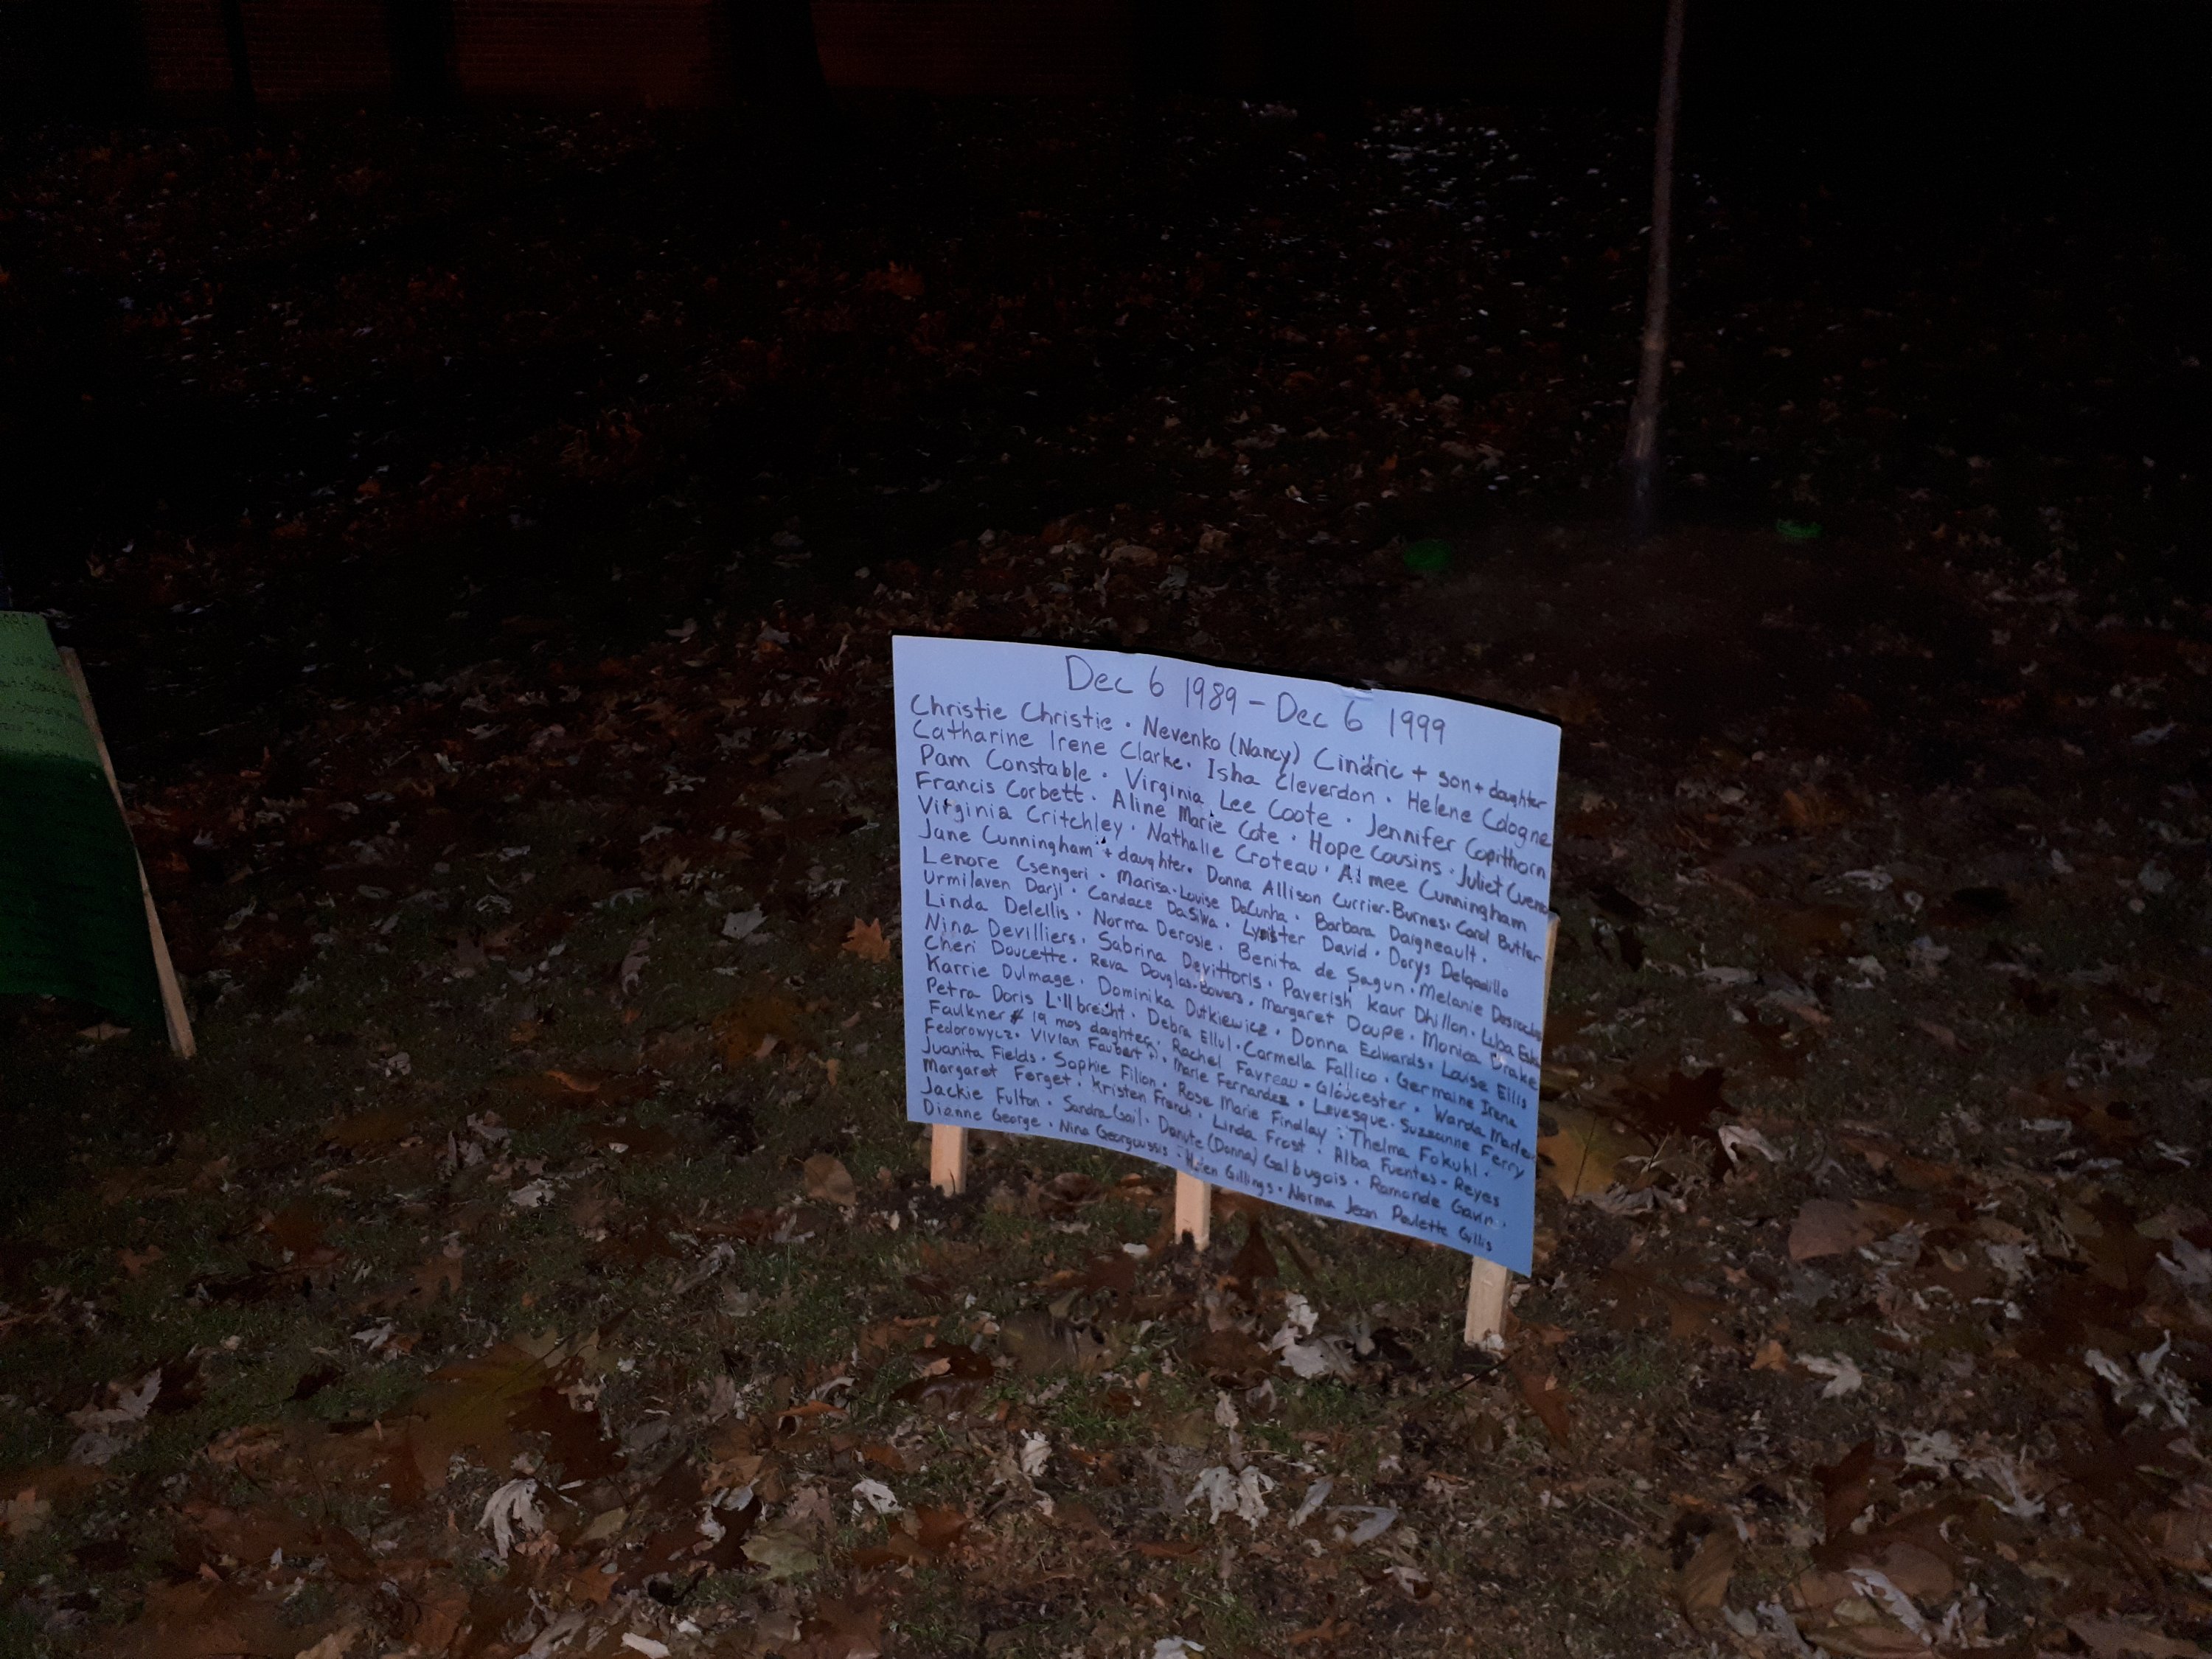 Dec 6 1989 – Dec 6 1999
Christie Christie · Nevenko (Nancy) Cindric + son + daughter
Catharine Irene Clarke · Isha Cleverdon · Helene Cologne
Pam Constable · Virginia Lee Coote · Jennifer Copithorn
Francis Corbett · Aline Marie Cote · Hope Cousins · Juliet Cuenco
Virginia Critchley · Nathalie Croteau · Aimee Cunningham
Jane Cunningham + daughter · Donna Allison Currier-Burnes · Carol Butler
Lenore Csengeri · Marisa-Louise DaCunha · Barbara Daigneault ·
Urmilaven Darji · Candace DaSilva · Lynster David · Dorys Delgadillo
Linda Delellis · Norma Derosie · Benita de Sagun · Melanie
Nina Devilliers · Sabrina Devittoris · Paverish Kaur Dhillon · Luba
Cheri Doucette · Reva Douglas-Bowers · Margaret Doupe · Monica Drake
Karrie Dulmage · Dominika Dutkiewicz · Donna Edwards · Louise Ellis
Petra Doris Lillbrecht · Debra Ellul · Carmella Fallico · Germaine Irene
Faulkner 19 mos daughter · Rachel Favreau-Gloucester · Warda
Fedorowycz · Vivian Faubert · Marie Fernandez · Levesque · Suzzanne Ferry
Juanita Fields · Sophie Filion · Rose Marie Findlay · Thelma Fokuhl ·
Margaret Forget · Kristen French · Linda Frost · Alba Fuentes-Reyes
Jackie Fulton · Sandra Gail · Danute (Donna) Galbugois · Ramonde Gavin ·
Dianne George · Nina · Helen Gillings · Norma Jean Paulette Gillis